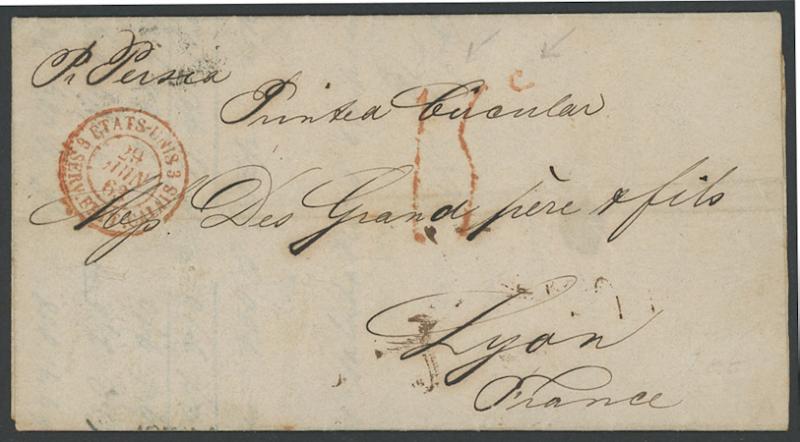 Pr Persia
Printed Circular
ETATS-UNIS 3 SERV. 3
29
JUIN
62
Mess. Des Grand père & fils
Lyon
France